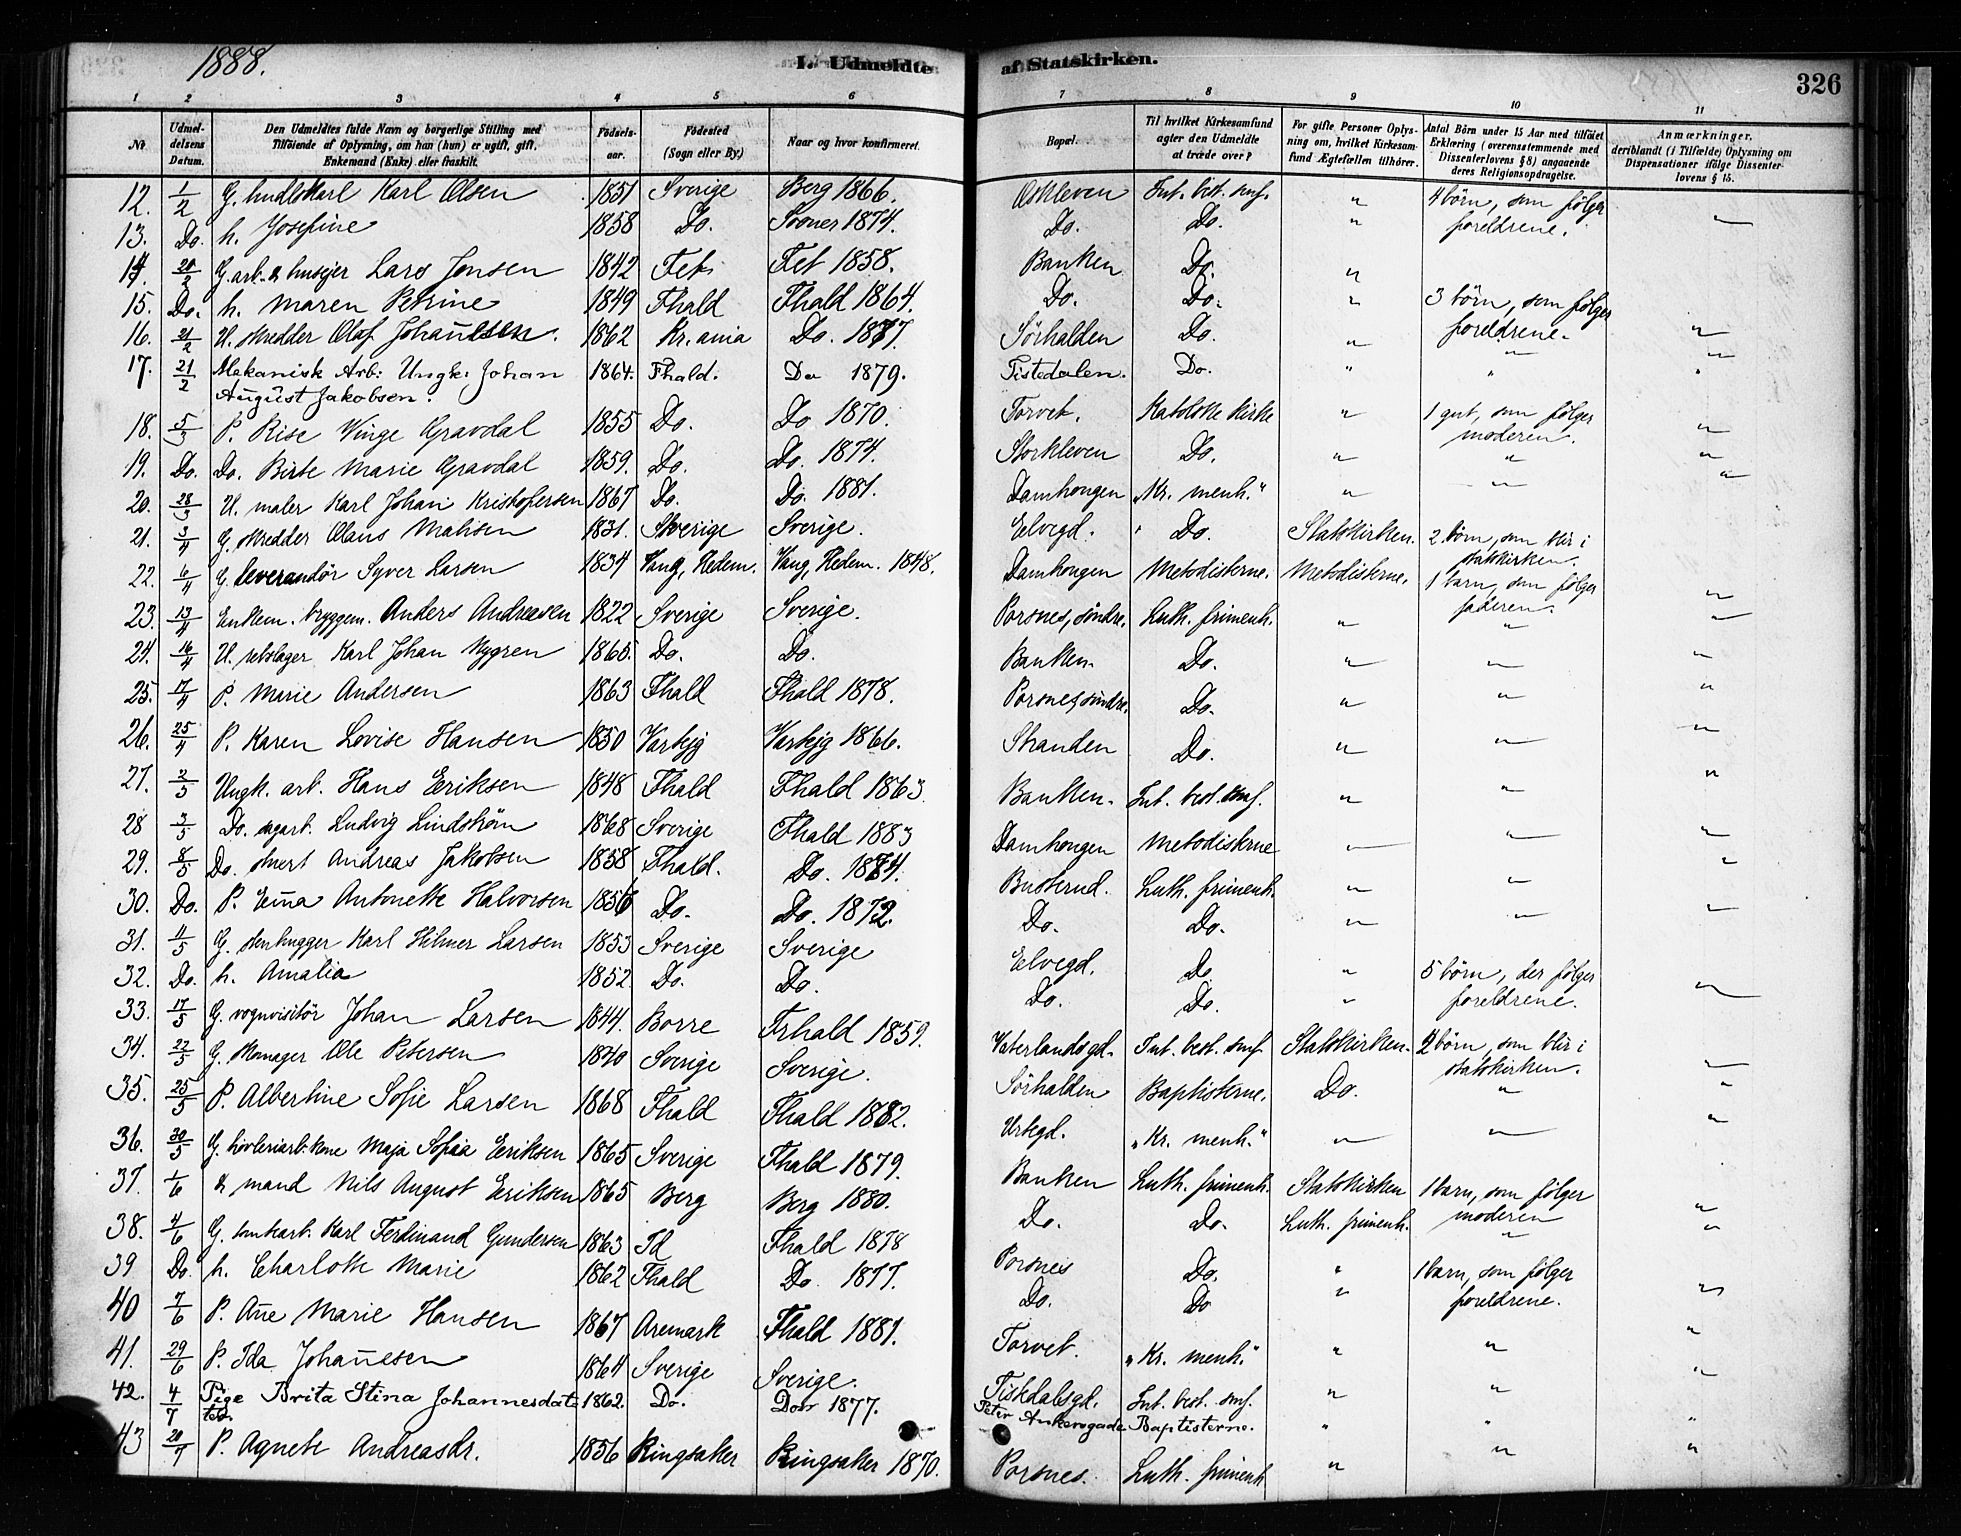 1888.
L. Udmeldte
af Statskirken.
326
1 2 3 4 5 6 7 8 9 10 11
No
Udmel-
delsens
Datum.
Den Udmeldtes fulde Navn og borgerlige Stilling med
Tilføiende af Oplysning, om han (hun) er ugift, gift,
Enkemand (Enke) eller fraskilt.
Fødsels-
aar.
Fødested
(Sogn eller By.)
Naar og hvor konfirmeret.
Bopæl.
Til hvilket Kirkesamfund
agter den Udmeldte
at træde over?
For gifte Personer Oplys-
ning om, hvilket Kirkesam-
fund Ægtefællen tilhører.
Antal Børn under 15 Aar med tilføiet
Erklæring (overensstemmende med
Dissenterlovens § 8) angaaende
deres Religionsopdragelse.
Anmærkninger,
deriblandt (i Tilfælde) Oplysning om
Dispensationer ifølge Dissenter-
lovens § 15.
12. 1/2 G. Karl Olsen 1851 Sverige Berg 1866. Askleven Int. best. smf. " 4 börn, som følger
13. Do. h. Josefine 1858 Do. 1874. Do. Do. " foreldrene. "
14. 20/2 G. arb. & husejer Lars Jensen 1842 Fet Fet 1858. Banken Do. "
15. Do. h. Maren Petrine 1849 Fhald Fhald 1864. Do. Do. " 3 börn, som følger
foreldrene. "
16. 21/2 U. skredder Olaf Johannesen. 1862 Kr.ania Do. 1877. Sörhalden Do. " " "
17. 21/2 Mekanisk Arb: Ungk: Johan 1864. Fhald. Do 1879. Tistedalen. Do. " " "
August Jakobsen.
18. 5/3 P. Rise Vinge Gravdal 1855 Do. Do 1870. Torvet. Katolske kirke " 1 gut, som følger
moderen. "
19. Do. Do. Birte Marie Gravdal 1859. Do. Do. 1874. Storkleven Do. " " "
20. 28/3 U. maler Karl Johan Kristofersen 1867 Do. Do. 1881. Damhougen „Kr. menh.“ " " "
21. 3/4 G. skredder Olaus Matisen 1831. Sverige Sverige. Elvegd. Do. Statskirken. 2 börn, som blir i
statskirken.
22. 6/4 G. leverandör Syver Larsen 1834 Vang, Hedem. Vang, Hedem. 1848. Damhougen Metodisterne. Metodisterne. 1 barn, som følger
faderen. "
23. 13/4 Enkem. bryggem. Anders Andreasen 1822 Sverige Sverige. Porsnes, söndre. Luth. frimenh. " " "
24. 16/4 U. rebslager Karl Johan Nygren 1865. Do. Do. Banken. Do. " " "
25. 17/4 P. Marie Andersen 1863 Fhald Fhald 1878. Porsnes, söndre. Do. " " "
26. 25/4 P. Karen Lovise Hansen 1850 Varteig Varteig 1866. Stranden Do. " " "
27. 2/5 Ungk. arb. Hans Eriksen 1848 Fhald Fhald 1863 Banken. Int. best. smf. " " "
28 3/5 Do. sagarb. Ludvig Lindström 1868 Sverige Fhald 1883 Damhougen Metodisterne " " "
29. 8/5 Do. Andreas Jakobsen 1858 Fhald. Do. 1874. Busterud. Luth. frimenh. " " "
30. Do. P. Emma Antonette Halvorsen 1856 Do. Do. 1872. Do. Do. " " "
31. 11/5 G. stenhugger Karl Hilmer Larsen 1853 Sverige Sverige Elvegd. Do " 5 börn, der følger
32. Do. h. Amalia 1852. Do. Do. Do. Do. " foreldrene. "
33. 17/5 G. vognvisitör Johan Larsen 1844. Borre Frhald 1859. Vaterlandsgd. Int. best. smf. Statskirken. 2 börn, som blir i
statskirken. "
34. 22/5 G. skomager Ole Petersen 1840 Sverige Sverige. Sörhalden Baptisterne. Do. " "
35. 25/5 P. Albertine Sofie Larsen 1868 Fhald Fhald 1882. Urtegd. „Kr. menh.“ " " "
36. 30/5 G. høvleriarb. kone Maja Sofia Eriksen 1865 Sverige Fhald 1879. Banken Luth. frimenh. Statskirken 1 barn, som følger
moderen "
37. 1/6 & mand Nils August Eriksen 1865 Berg Berg 1880. Do. Do. Luth. frimenh. " "
38. 4/6 G. Karl Ferdinand Gundersen 1863 Id Fhald 1878 Porsnes Do. " 1 barn, som følger
39 Do. h. Charlotte Marie 1862 Fhald Do 1877. Do. Do " foreldrene. "
40 7/6 P. Ane Marie Hansen 1867 Aremark Fhald 1881. Torvet. „Kr. menh.“ " " "
41. 29/6 P. Ida Johannesen 1864 Sverige Sverige. Tistedalsgd. Int. best. smf. " " "
42. 4/7 Pige Brita Stina Johannesdat- 1862. Do. Do 1877. Peter Ankersgade Baptisterne. " " "
ter.
43 20/7 P. Agnete Andreasdr. 1856 Ringsaker Ringsaker 1870. Porsnes. Luth. frimenh " " "